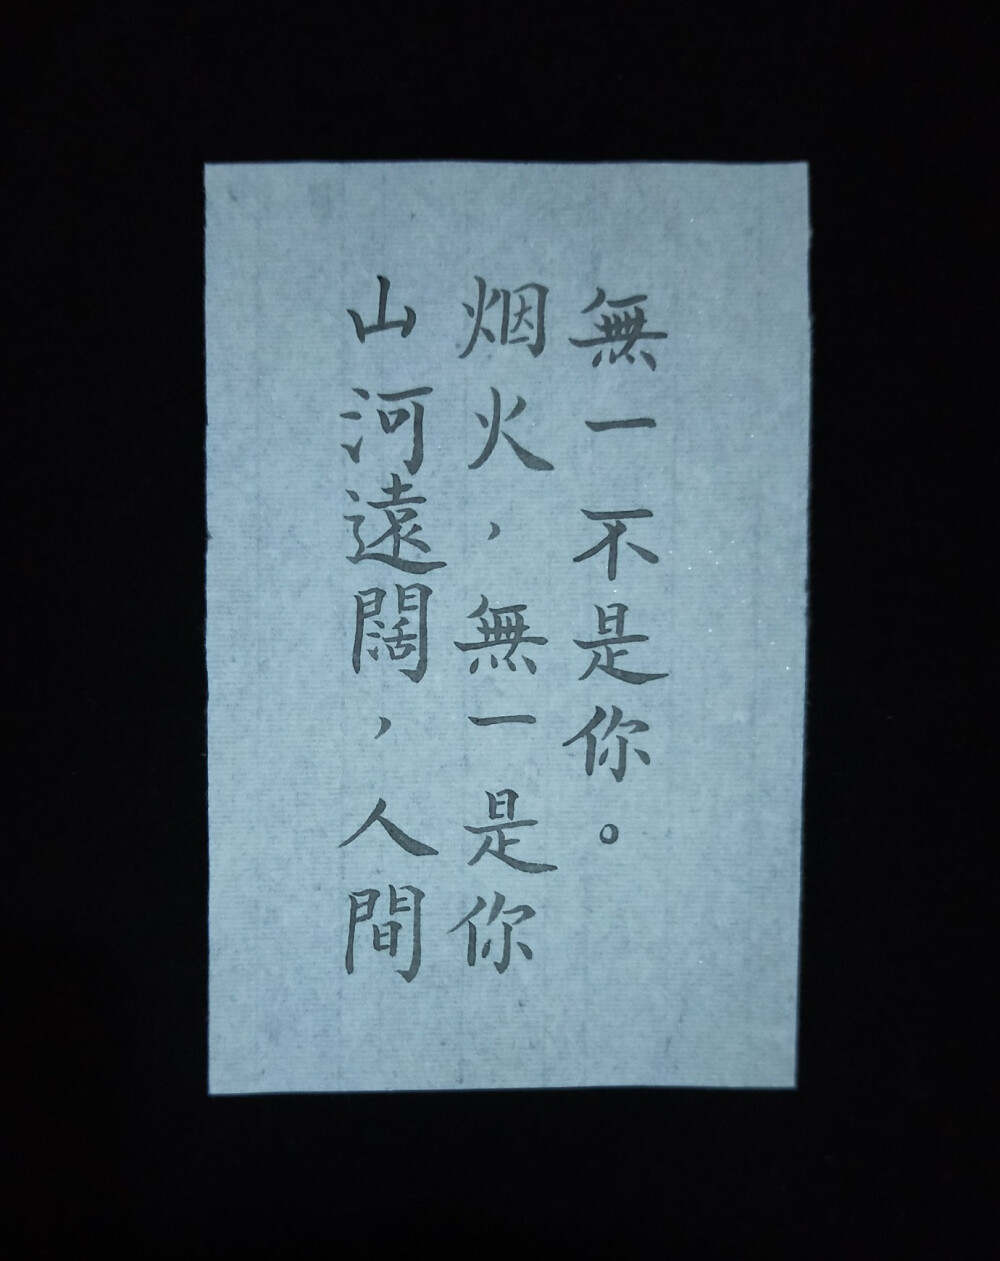 山河遠闊，人間
烟火，無一是你
無一不是你。